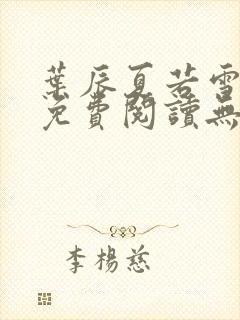 葉辰夏若雪
免費閱讀無
李楊慈